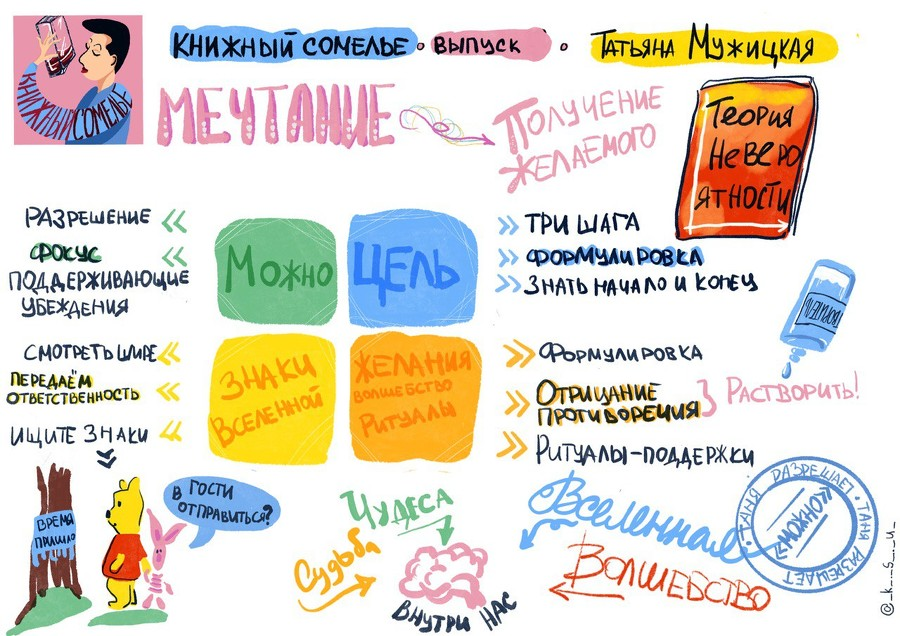 КНИЖНЫЙ СОМЕЛЬЕ • ВЫПУСК • ТАТЬЯНА МУЖИЦКАЯ
КНИЖНЫЙ СОМЕЛЬЕ
МЕЧТАНИЕ
ПОЛУЧЕНИЕ
ЖЕЛАЕМОГО
ТЕОРИЯ
НЕВЕРО
ЯТНОСТИ
РАЗРЕШЕНИЕ
ФОКУС
ПОДДЕРЖИВАЮЩИЕ
УБЕЖДЕНИЯ
МОЖНО
ЦЕЛЬ
ТРИ ШАГА
ФОРМУЛИРОВКА
ЗНАТЬ НАЧАЛО И КОНЕЦ
СМОТРЕТЬ ШИРЕ
ПЕРЕДАЁМ
ОТВЕТСТВЕННОСТЬ
ИЩИТЕ ЗНАКИ
ЗНАКИ
ВСЕЛЕННОЙ
ЖЕЛАНИЯ
ВОЛШЕБСТВО
РИТУАЛЫ
ФОРМУЛИРОВКА
ОТРИЦАНИЕ
ПРОТИВОРЕЧИЯ
РИТУАЛЫ-ПОДДЕРЖКИ
РАСТВОРИТЬ!
ВРЕМЯ
ПРИШЛО
В ГОСТИ
ОТПРАВИТЬСЯ?
ЧУДЕСА
СУДЬБА
ВНУТРИ НАС
ВСЕЛЕННАЯ
ВОЛШЕБСТВО
ТАНЯ РАЗРЕШАЕТ • ТАНЯ РАЗРЕШАЕТ •